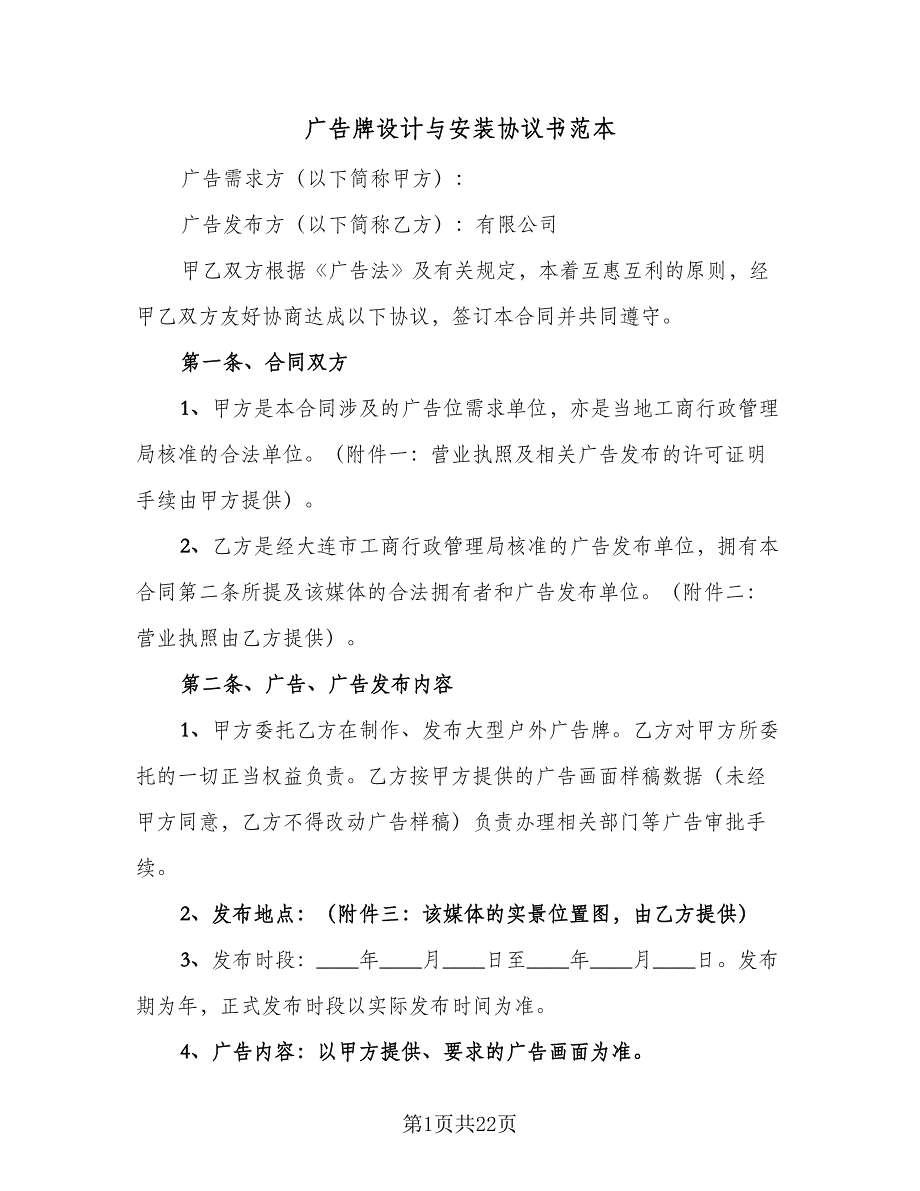 广告牌设计与安装协议书范本
广告需求方（以下简称甲方）：
广告发布方（以下简称乙方）：有限公司
甲乙双方根据《广告法》及有关规定，本着互惠互利的原则，经
甲乙双方友好协商达成以下协议，签订本合同并共同遵守。
第一条、合同双方
1、甲方是本合同涉及的广告位需求单位，亦是当地工商行政管理
局核准的合法单位。（附件一：营业执照及相关广告发布的许可证明
手续由甲方提供）。
2、乙方是经大连市工商行政管理局核准的广告发布单位，拥有本
合同第二条所提及该媒体的合法拥有者和广告发布单位。（附件二：
营业执照由乙方提供）。
第二条、广告、广告发布内容
1、甲方委托乙方在制作、发布大型户外广告牌。乙方对甲方所委
托的一切正当权益负责。乙方按甲方提供的广告画面样稿数据（未经
甲方同意，乙方不得改动广告样稿）负责办理相关部门等广告审批手
续。
2、发布地点：（附件三：该媒体的实景位置图，由乙方提供）
3、发布时段：____年____月____日至____年____月____日。发布
期为年，正式发布时段以实际发布时间为准。
4、广告内容：以甲方提供、要求的广告画面为准。
第1页共22页